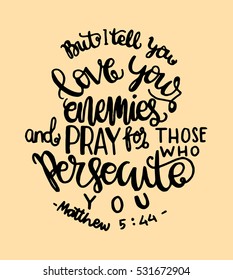 But I tell you
love your
enemies
and PRAY for THOSE
WHO
Persecute
YOU
- Matthew 5:44 -
shutterstock.com · 531672904